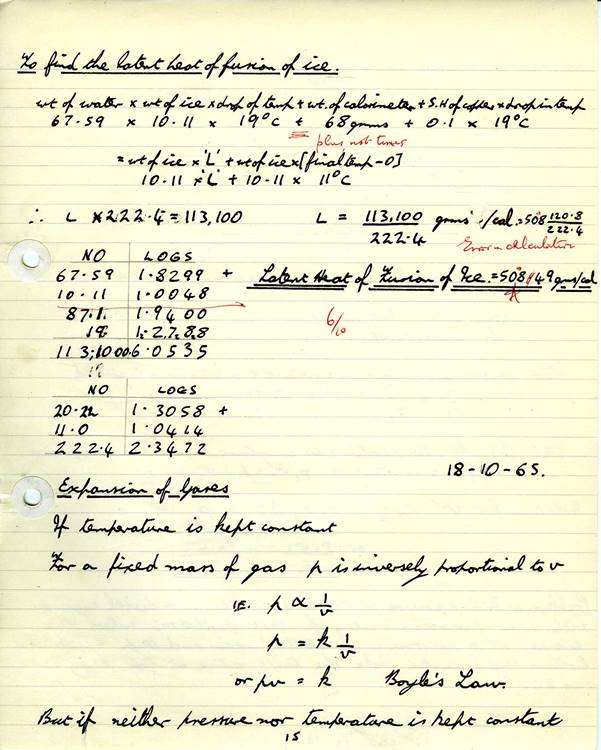 To find the latent heat of fusion of ice.
wt of water x wt of ice x drop of temp + wt. of calorimeter + S.H of copper x drop in temp
67.59 x 10.11 x 19°C + 68 gmms + 0.1 x 19°C
plus not times
= wt of ice x 'L' + wt of ice x [final temp - 0]
10.11 x 'L' + 10.11 x 11°C
∴ L x 222.4 = 113,100 L = 113,100 / 222.4 gms /cal. = 508 120.8/222.4
Error in calculation
NO LOGS
67.59 1.8299 +
Latent Heat of Fusion of Ice. = 508.49 gms/cal
10.11 1.0048
87.1. 1.9400
6/10
19 1.2788
113,1000 6.0535
NO LOGS
20.22 1.3058 +
11.0 1.0414
222.4 2.3472
18-10-65.
Expansion of Gases
If temperature is kept constant
For a fixed mass of gas p is inversely proportional to v
IE. p ∝ 1/v
p = k 1/v
or pv = k Boyle's Law.
But if neither pressure nor temperature is kept constant
15